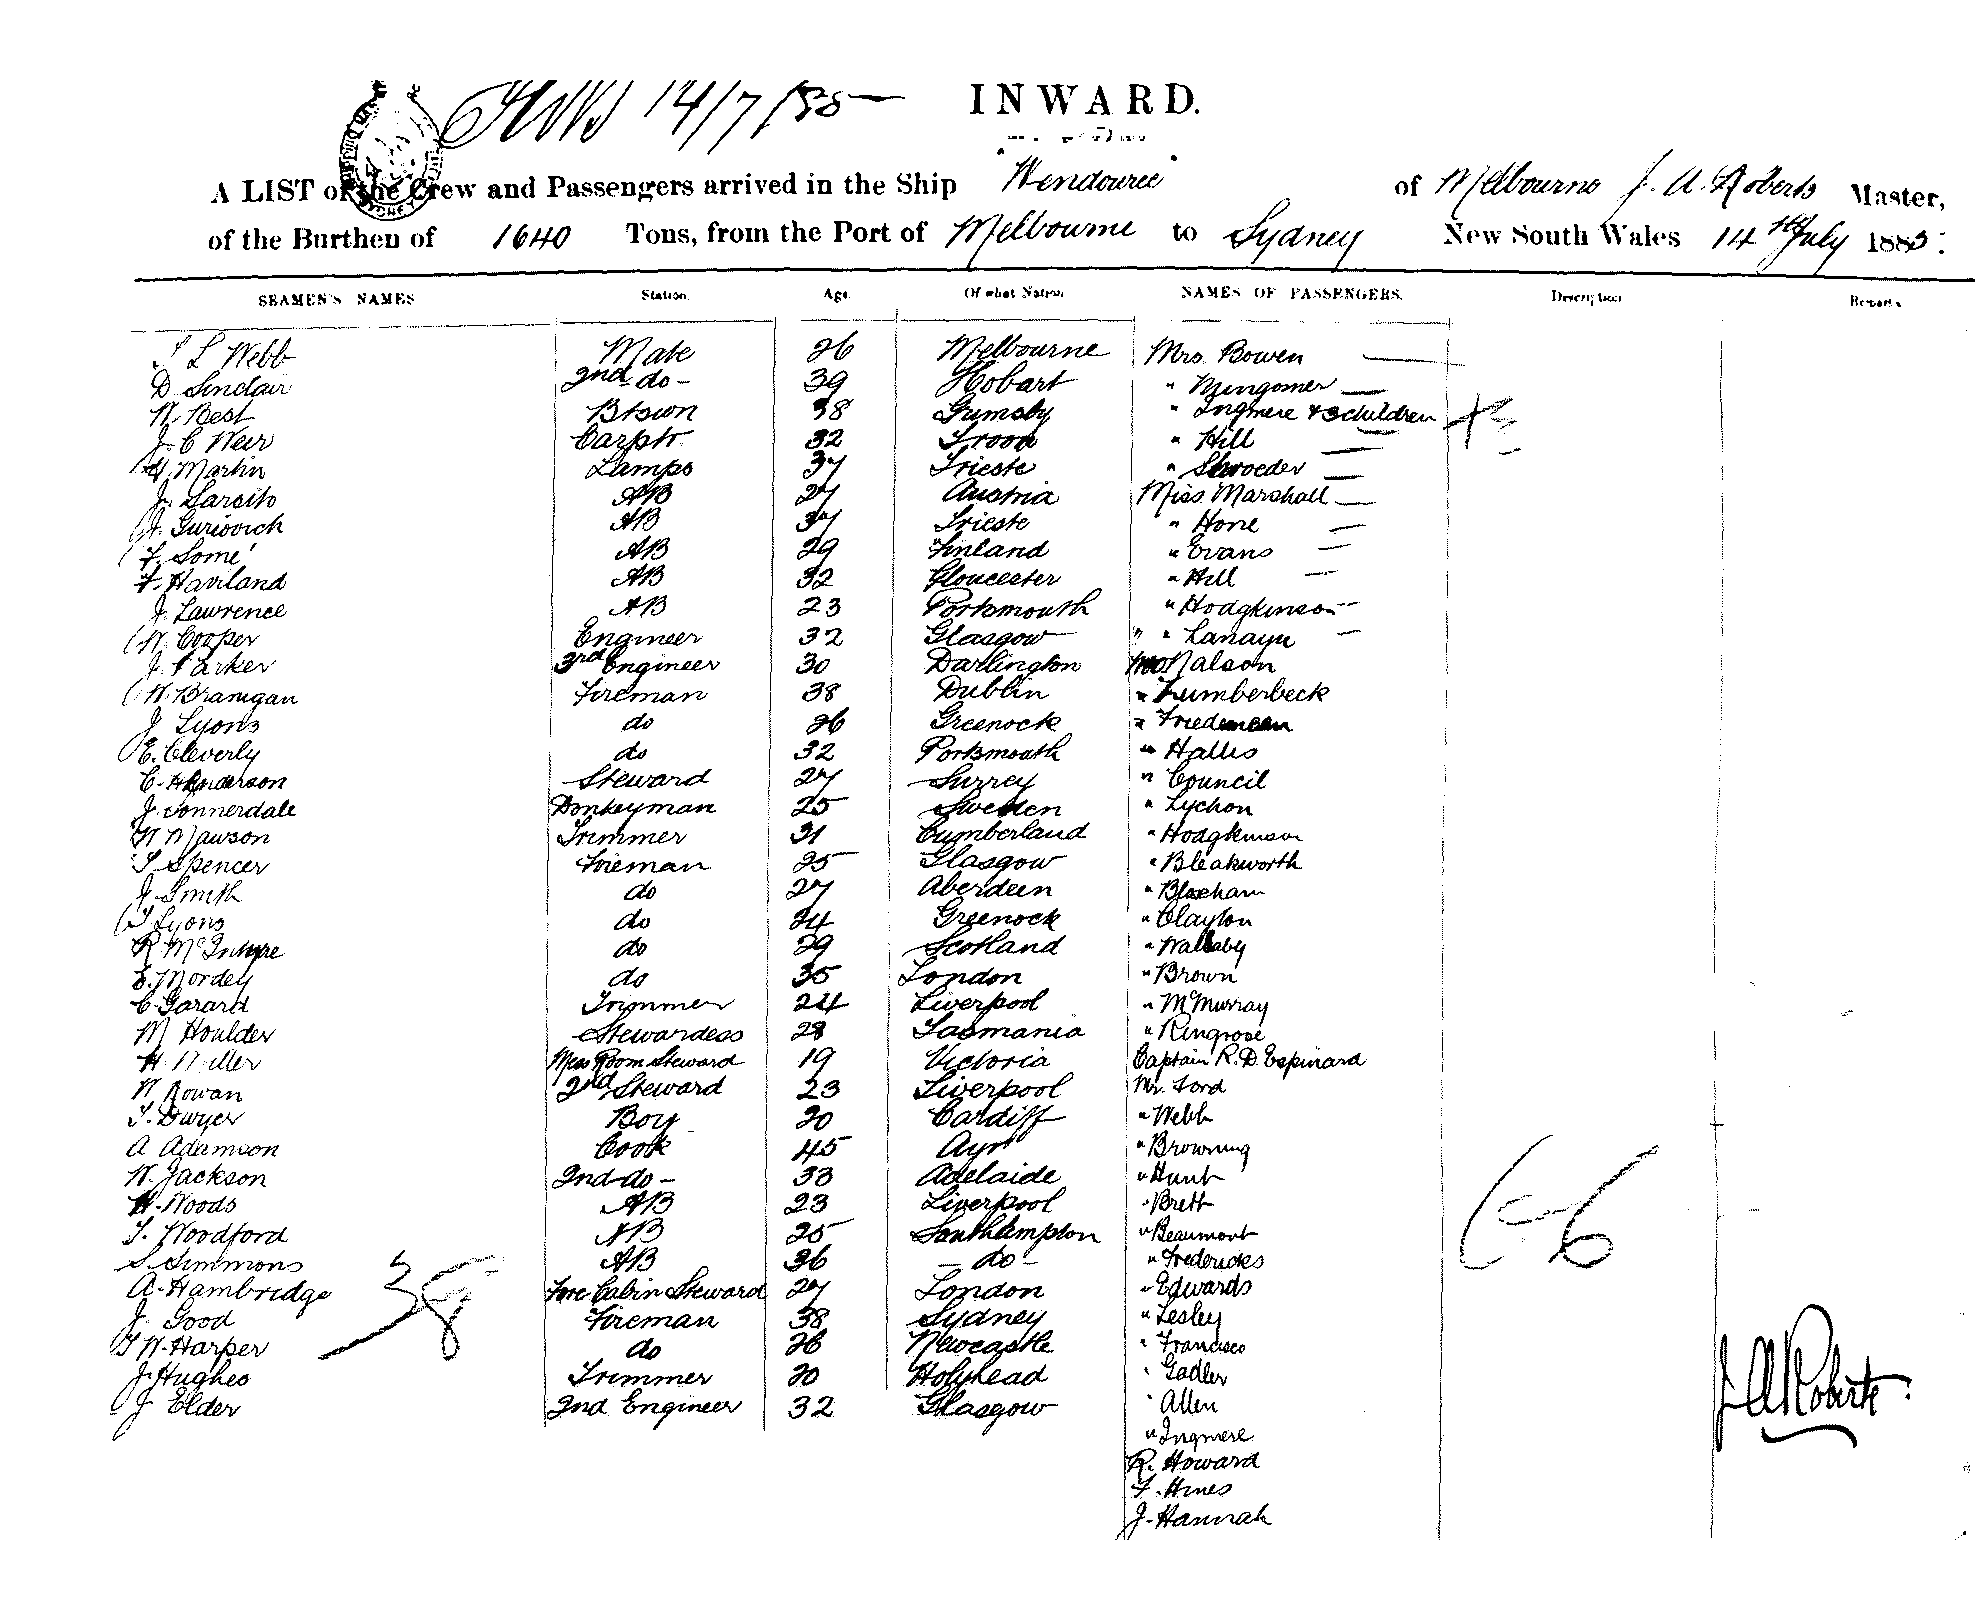 14/7/85
INWARD.
A LIST of the Crew and Passengers arrived in the Ship "Wendouree" of Melbourne J. A. Roberts Master,
of the Burthen of 1640 Tons, from the Port of Melbourne to Sydney New South Wales 14th July 1885.
SEAMEN'S NAMES Station Age Of what Nation NAMES OF PASSENGERS. Description Remarks
L Webb Mate 26 Melbourne Mrs. Bowen
D Sinclair 2nd do - 39 Hobart "
W. Best Btswn 38 Grimsby " Ingmere & 3 children
J. C Weir Carptr 32 Troon " Hill
Martin Lamps 37 Trieste " Shroeder
J. AB 27 Austria Miss Marshall
J. Guriovich AB 37 Trieste " Hone
F. Some' AB 29 Finland " Evans
F. Haviland AB 32 Gloucester " Hill
J. Lawrence AB 23 Portsmouth " Hodgkinson
W. Cooper Engineer 32 Glasgow " "
J. Parker 3rd Engineer 30 Darlington Nalson
W. Branigan Fireman 38 Dublin " Lumberbeck
J Lyons do 26 Greenock "
E. Cleverly do 32 Portsmouth " Halles
C. Henderson Steward 27 Surrey " Council
J. Sonnerdale Donkeyman 25 Sweden " Lychon
W Mawson Trimmer 31 Cumberland " Hodgkinson
T Spencer Fireman 25 Glasgow " Bleakworth
J. Smith do 27 Aberdeen " Bloxham
T Lyons do 24 Greenock " Clayton
R McIntyre do 29 Scotland " Wallaby
E. Mordey do 35 London " Brown
C. Garard Trimmer 24 Liverpool " McMurray
M Houlder Stewardess 28 Tasmania " Ringrose
H. Miller Mess Room Steward 19 Victoria Captain R. D. Espinard
W Rowan 2nd Steward 23 Liverpool Mr. Ford
T. Dwyer Boy 20 Cardiff " Webb
A Adamson Cook 45 Ayr " Browning
W. Jackson 2nd do - 33 Adelaide " Hunt
H. Woods AB 23 Liverpool " Brett
T. Woodford AB 25 Southampton " Beaumont
S Simmons AB 36 - do - " Fredericks
A. Hambridge Fore Cabin Steward 27 London " Edwards
J. Good Fireman 38 Sydney " Lesley
T W. Harper do 26 Newcastle " Francisco
J. Hughes Trimmer 20 Holyhead " Gadler
J Elder 2nd Engineer 32 Glasgow " Allen
" Ingmere
R. Howard
F. Hines
J. Hannah
38
66
J. A Roberts